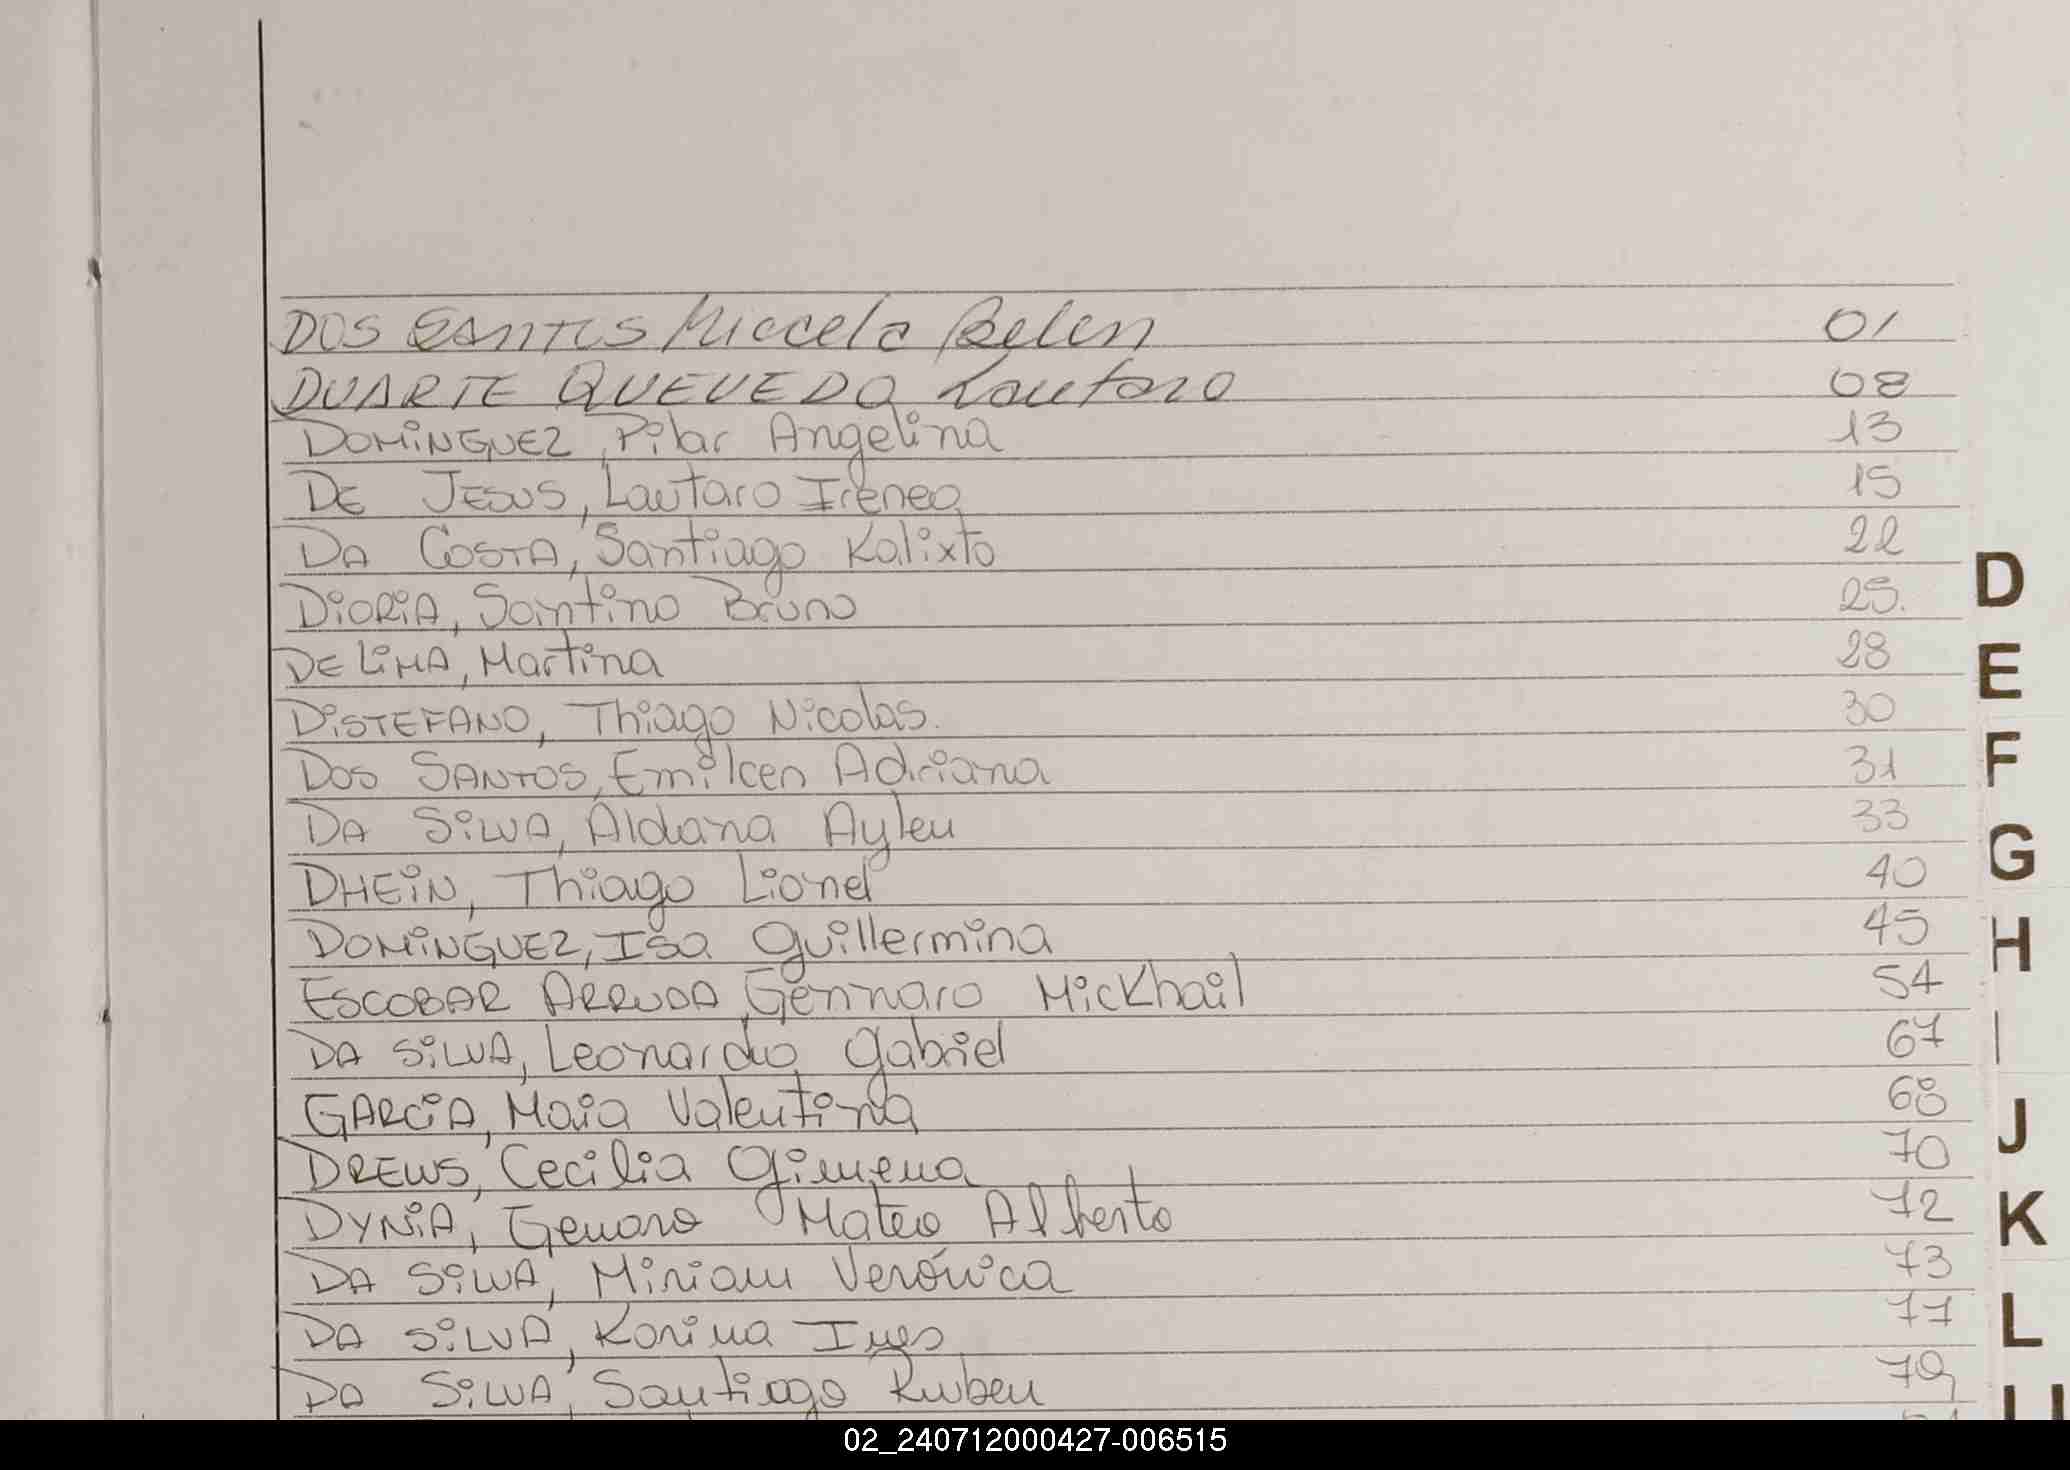 DOS SANTOS Micaela Belen 01
DUARTE QUEVEDO Lautaro 08
DOMiNGUEZ, Pilar Angelina 13
DE JESUS, Lautaro Ireneo 15
DA COSTA, Santiago Kalixto 22
DiORiA, Santino Bruno 25.
DE LiMA, Martina 28
DiSTEFANO, Thiago Nicolas. 30
DOS SANTOS, Emilcen Adriana 31
DA SiLVA, Aldana Ayleu 33
DHEiN, Thiago Lionel 40
DOMiNGUEZ, Isa Guillermina 45
ESCOBAR ARRUDA, Gennaro Mickhail 54
DA SiLVA, Leonardo Gabriel 67
GARCiA, Maia Valentina 68
DREWS, Cecilia Gimena 70
DYNiA, Genaro Mateo Alberto 72
DA SiLVA, Miriam Verónica 73
DA SiLVA, Karina Ines 77
DA SiLVA, Santiago Ruben 79
D
E
F
G
H
I
J
K
L
02_240712000427-006515